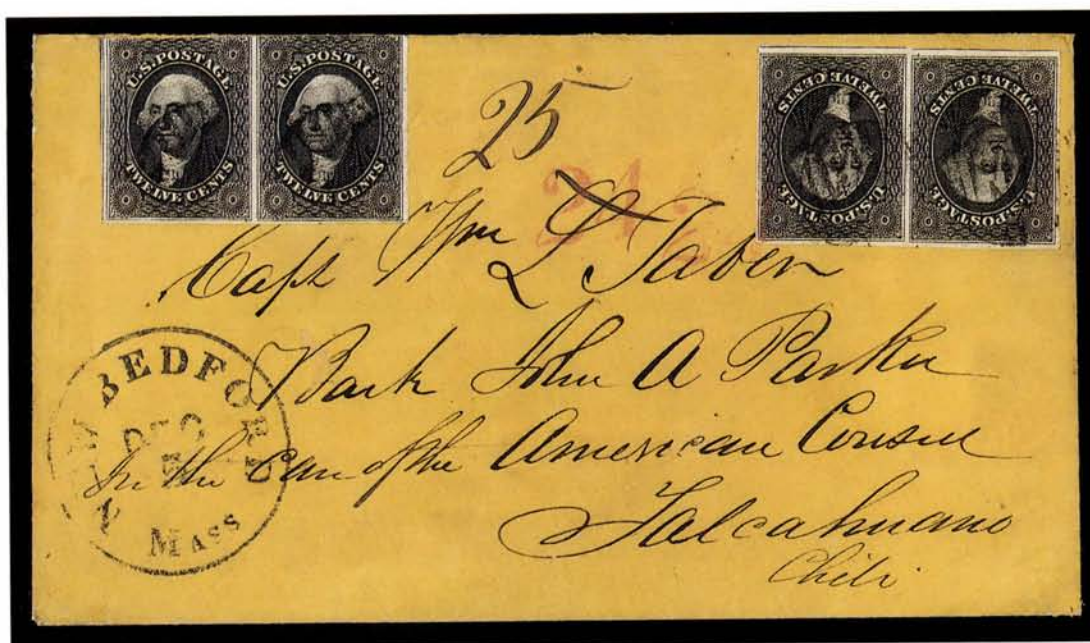 U.S. POSTAGE
TWELVE CENTS
U.S. POSTAGE
TWELVE CENTS
U.S. POSTAGE
TWELVE CENTS
U.S. POSTAGE
TWELVE CENTS
25
24
Capt Wm L Taber
Bark John A Parker
In the care of the American Consul
Talcahuano
Chili
NEW BEDFORD
DEC
MASS